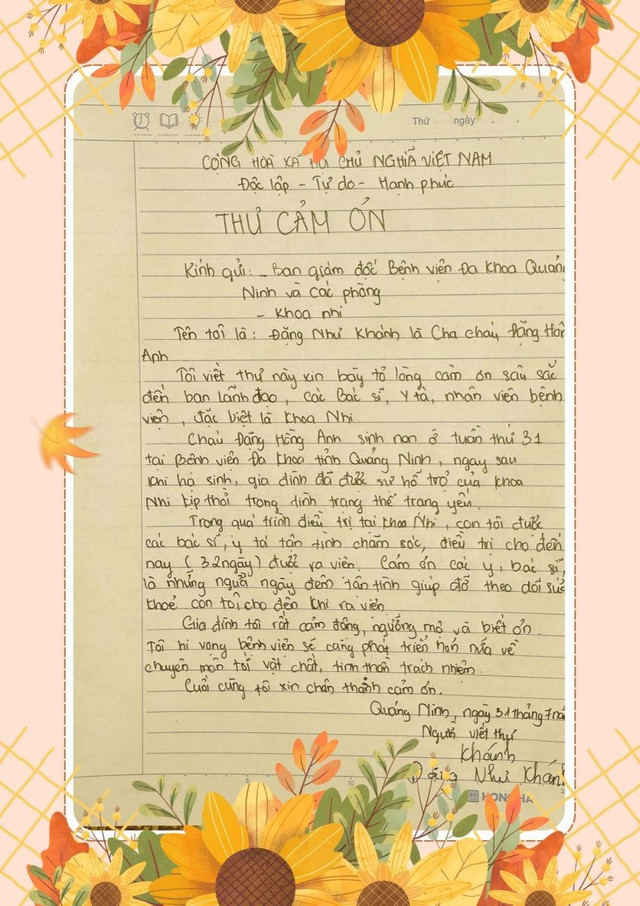 Thứ ngày
CỘNG HOÀ XÃ HỘI CHỦ NGHĨA VIỆT NAM
Độc lập - Tự do - Hạnh phúc
THƯ CẢM ƠN
Kính gửi: - Ban giám đốc Bệnh viện Đa Khoa Quảng
Ninh và Các phòng
- Khoa nhi
Tên tôi là: Đặng Như Khánh là Cha cháu Đặng Hồng
Anh
Tôi viết thư này xin bày tỏ lòng cảm ơn sâu sắc
đến ban lãnh đạo, các Bác sĩ, Y tá, nhân viên bệnh
viện, đặc biệt là Khoa Nhi
Cháu Đặng Hồng Anh sinh non ở tuần thứ 31
tại Bệnh viện Đa Khoa tỉnh Quảng Ninh, ngay sau
khi hạ sinh, gia đình đã được sự hỗ trợ của khoa
Nhi kịp thời trong tình trạng thể trạng yếu.
Trong quá trình điều trị tại khoa Nhi, con tôi được
các bác sĩ, y tá tận tình chăm sóc, điều trị cho đến
nay (32 ngày) được ra viện. Cảm ơn các y, bác sĩ,
là những người ngày đêm tận tình giúp đỡ theo dõi sức
khoẻ con tôi, cho đến khi ra viện
Gia đình tôi rất cảm động, ngưỡng mộ và biết ơn.
Tôi hi vọng bệnh viện sẽ càng phát triển hơn nữa về
chuyên môn tới vật chất, tinh thần trách nhiệm.
Cuối cùng tôi xin chân thành cảm ơn.
Quảng Ninh, ngày 31 tháng 7 năm
Người viết thư
Khánh
Đặng Như Khánh
HONG HA